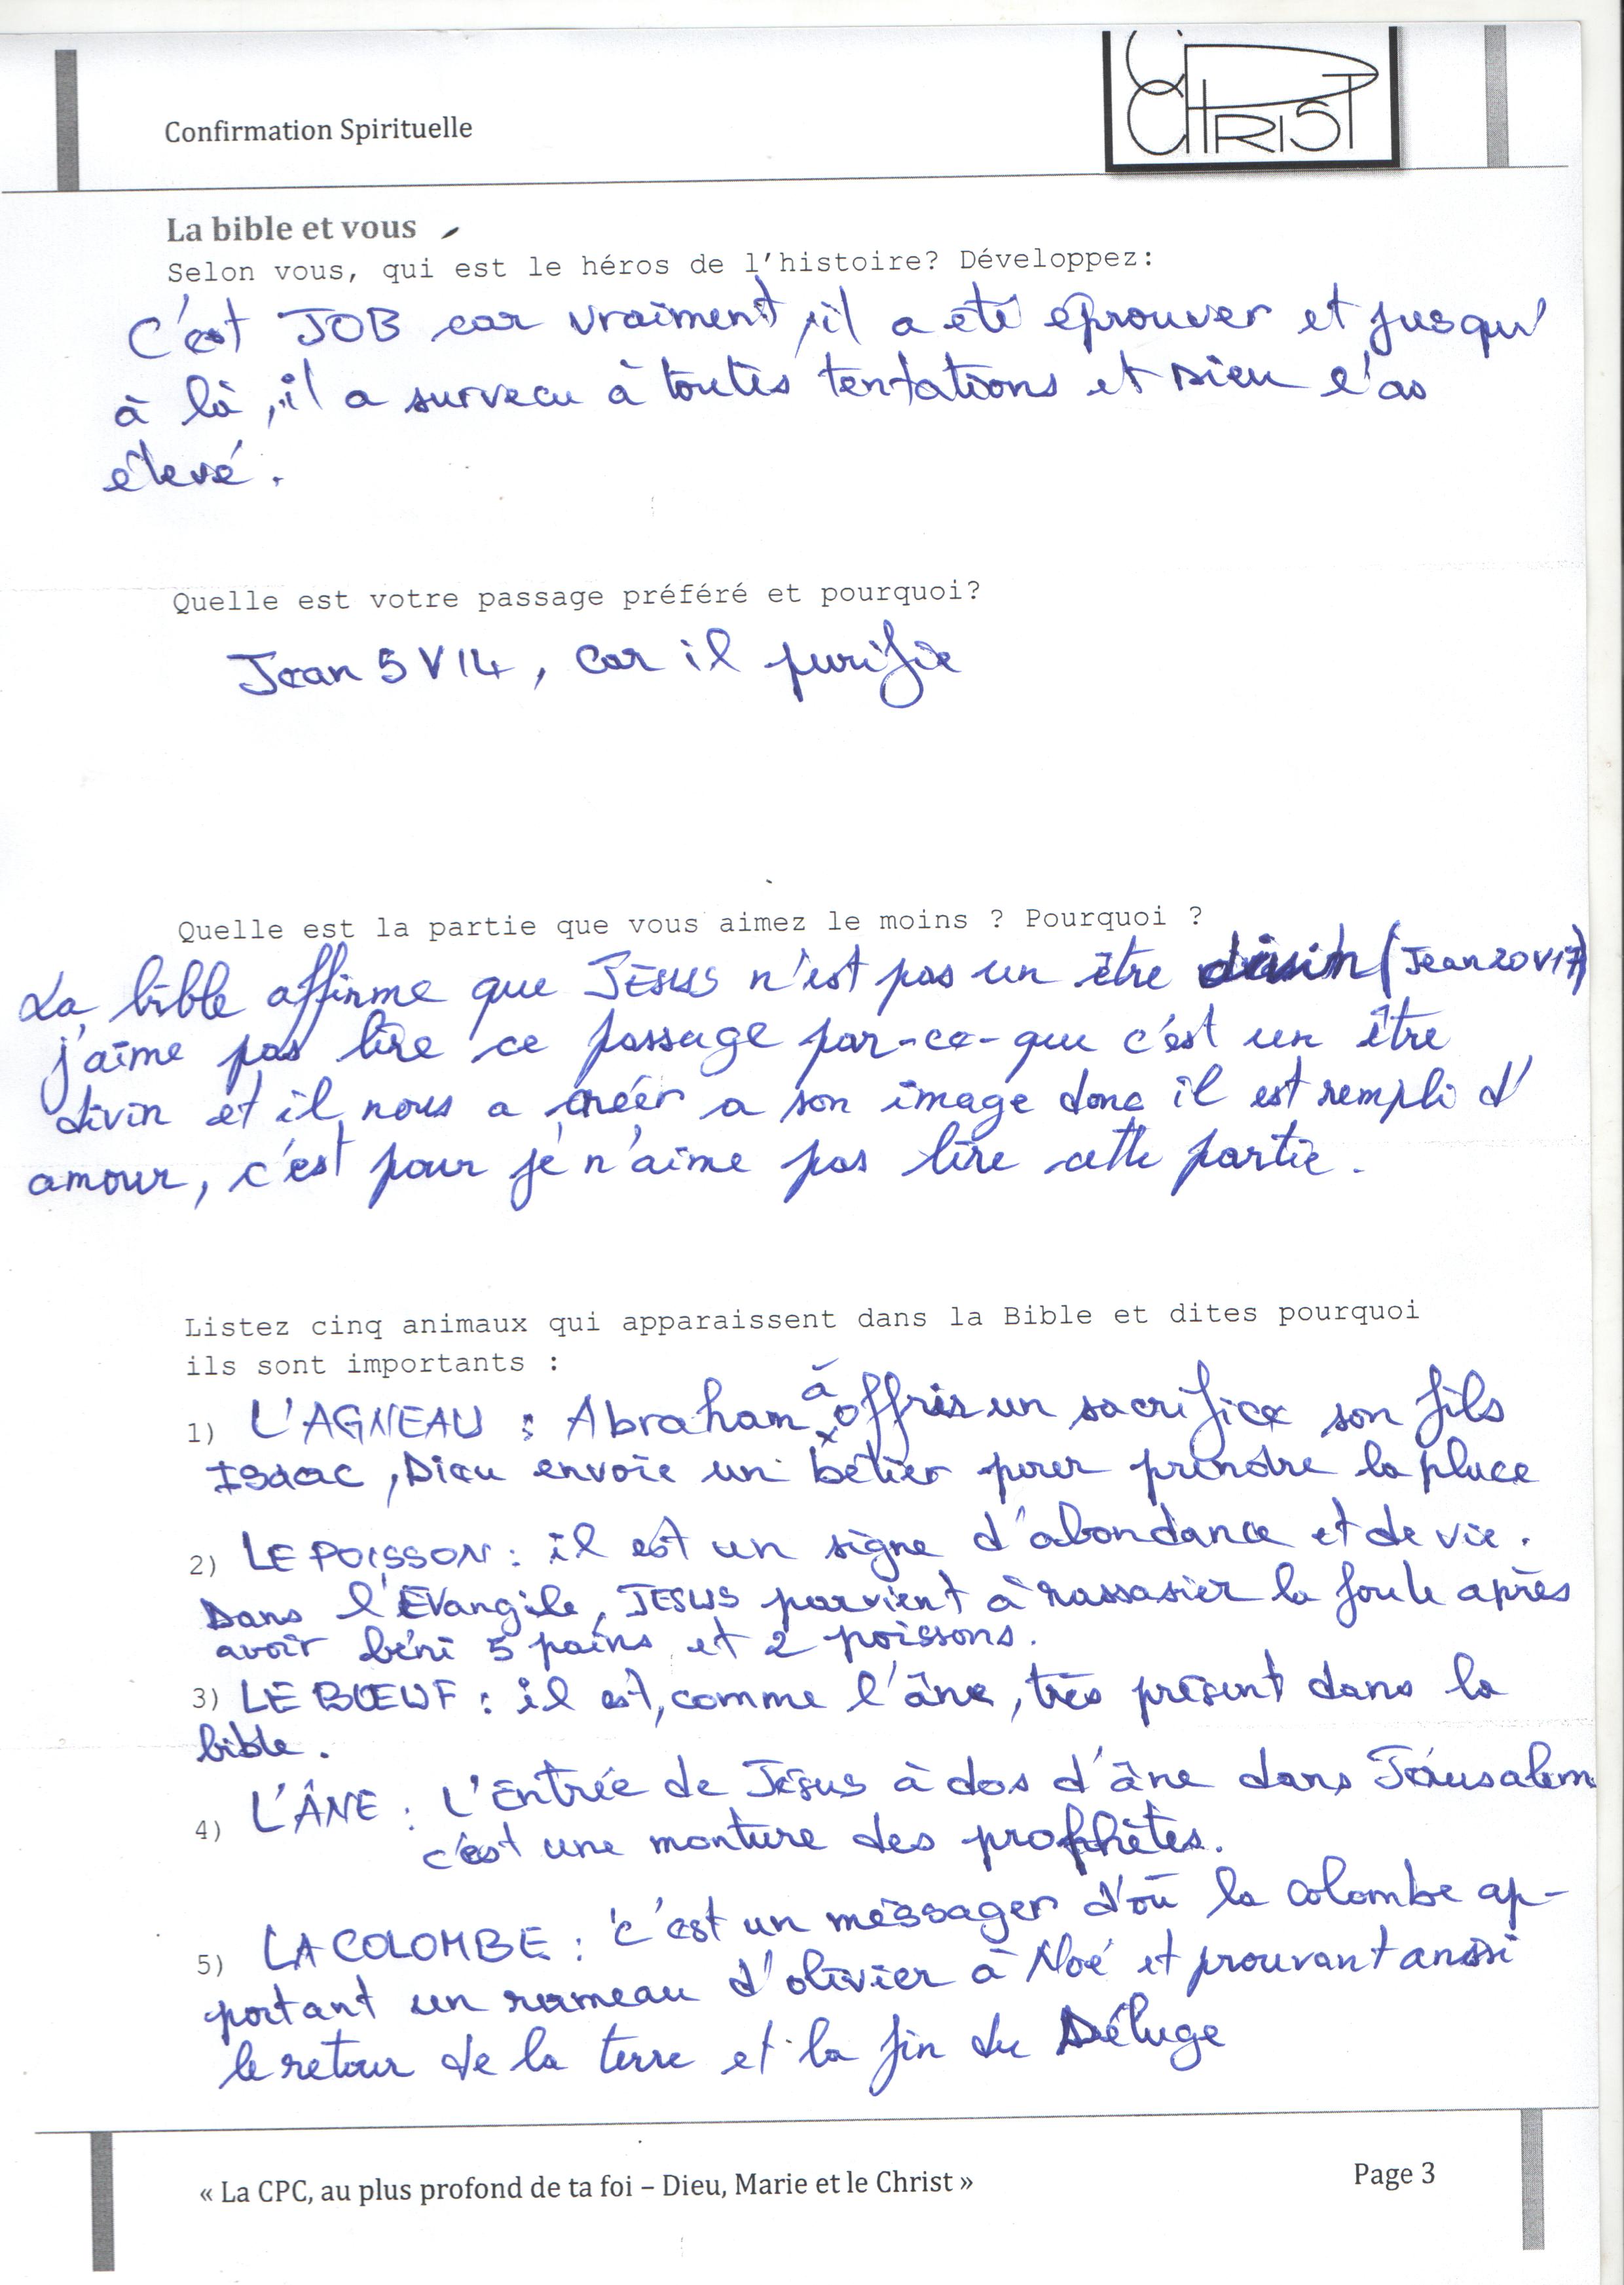 Confirmation Spirituelle
CHRIST
La bible et vous
Selon vous, qui est le héros de l'histoire? Développez:
C'est JOB car vraiment, il a été éprouver et jusqu'
à là, il a survecu à toutes tentations et Dieu l'as
élevé.
Quelle est votre passage préféré et pourquoi?
Jean 5 V 14, Car il purifie
Quelle est la partie que vous aimez le moins ? Pourquoi ?
La bible affirme que JESUS n'est pas un être divin (Jean 20 V 17)
j'aime pas lire ce passage par-ce-que c'est un être
divin et il nous a créér a son image donc il est rempli d'
amour, c'est pour je n'aime pas lire cette partie.
Listez cinq animaux qui apparaissent dans la Bible et dites pourquoi
ils sont importants :
1) L'AGNEAU : Abraham à offris un sacrifice son fils
Isaac, Dieu envoie un bélier pour prendre la place
2) LE POISSON : il est un signe d'abondance et de vie.
Dans l'Evangile, JESUS parvient à rassasier la foule après
avoir béni 5 pains et 2 poissons.
3) LE BŒUF : il est, comme l'âne, très présent dans la
bible.
4) L'ÂNE : L'Entrée de Jésus à dos d'âne dans Jérusalem
c'est une monture des prophètes.
5) LA COLOMBE : c'est un messager d'où la colombe ap-
portant un rameau d'olivier à Noé et prouvant aussi
le retour de la terre et la fin du Déluge
« La CPC, au plus profond de ta foi – Dieu, Marie et le Christ »
Page 3